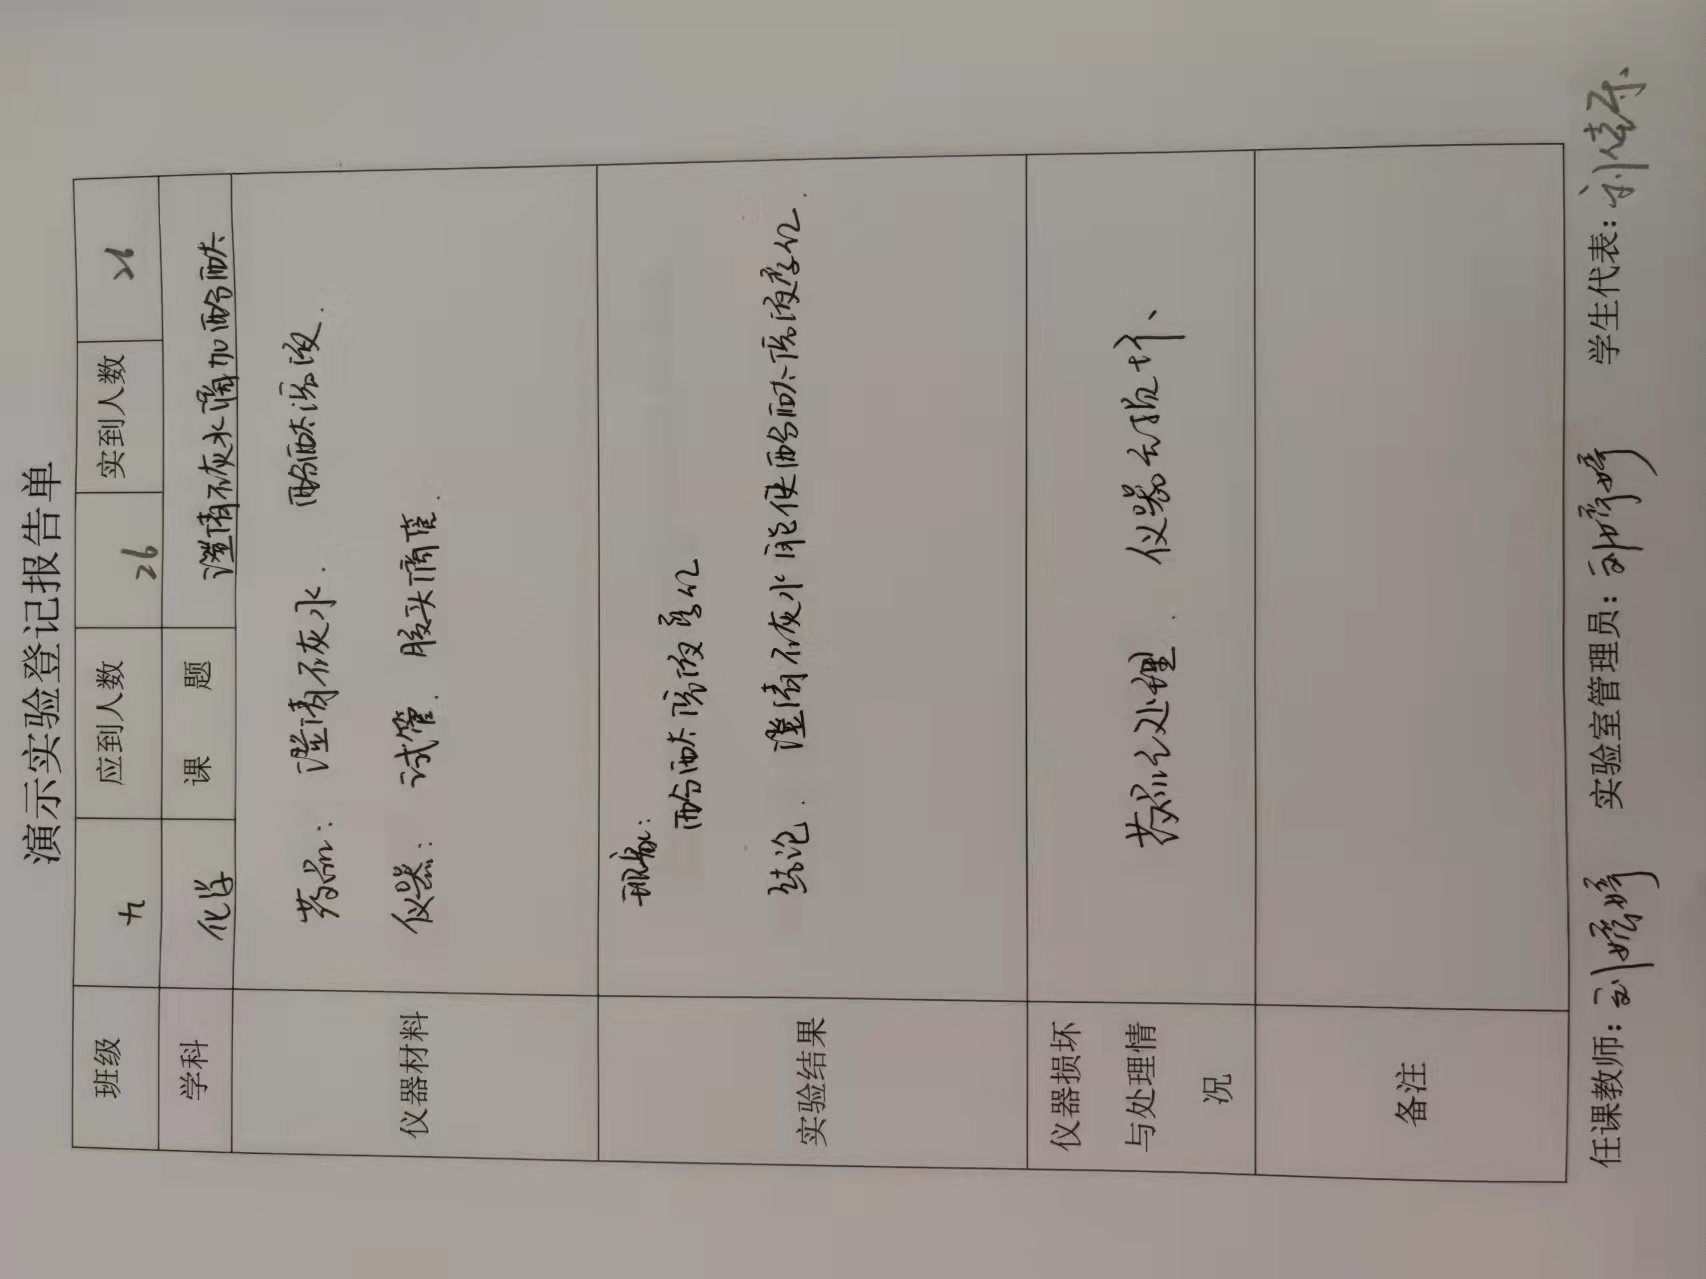 演示实验登记报告单
班级 九 应到人数 26 实到人数 26
学科 化学 课题 澄清石灰水滴加酚酞
仪器材料
药品: 澄清石灰水. 酚酞溶液.
仪器: 试管. 胶头滴管.
实验结果
现象:
酚酞溶液变红
结论. 澄清石灰水能使酚酞溶液变红.
仪器损坏
与处理情
况
药品已处理. 仪器无损坏、
备注
任课教师: 刘婷婷 实验室管理员: 刘婷婷 学生代表: 刘